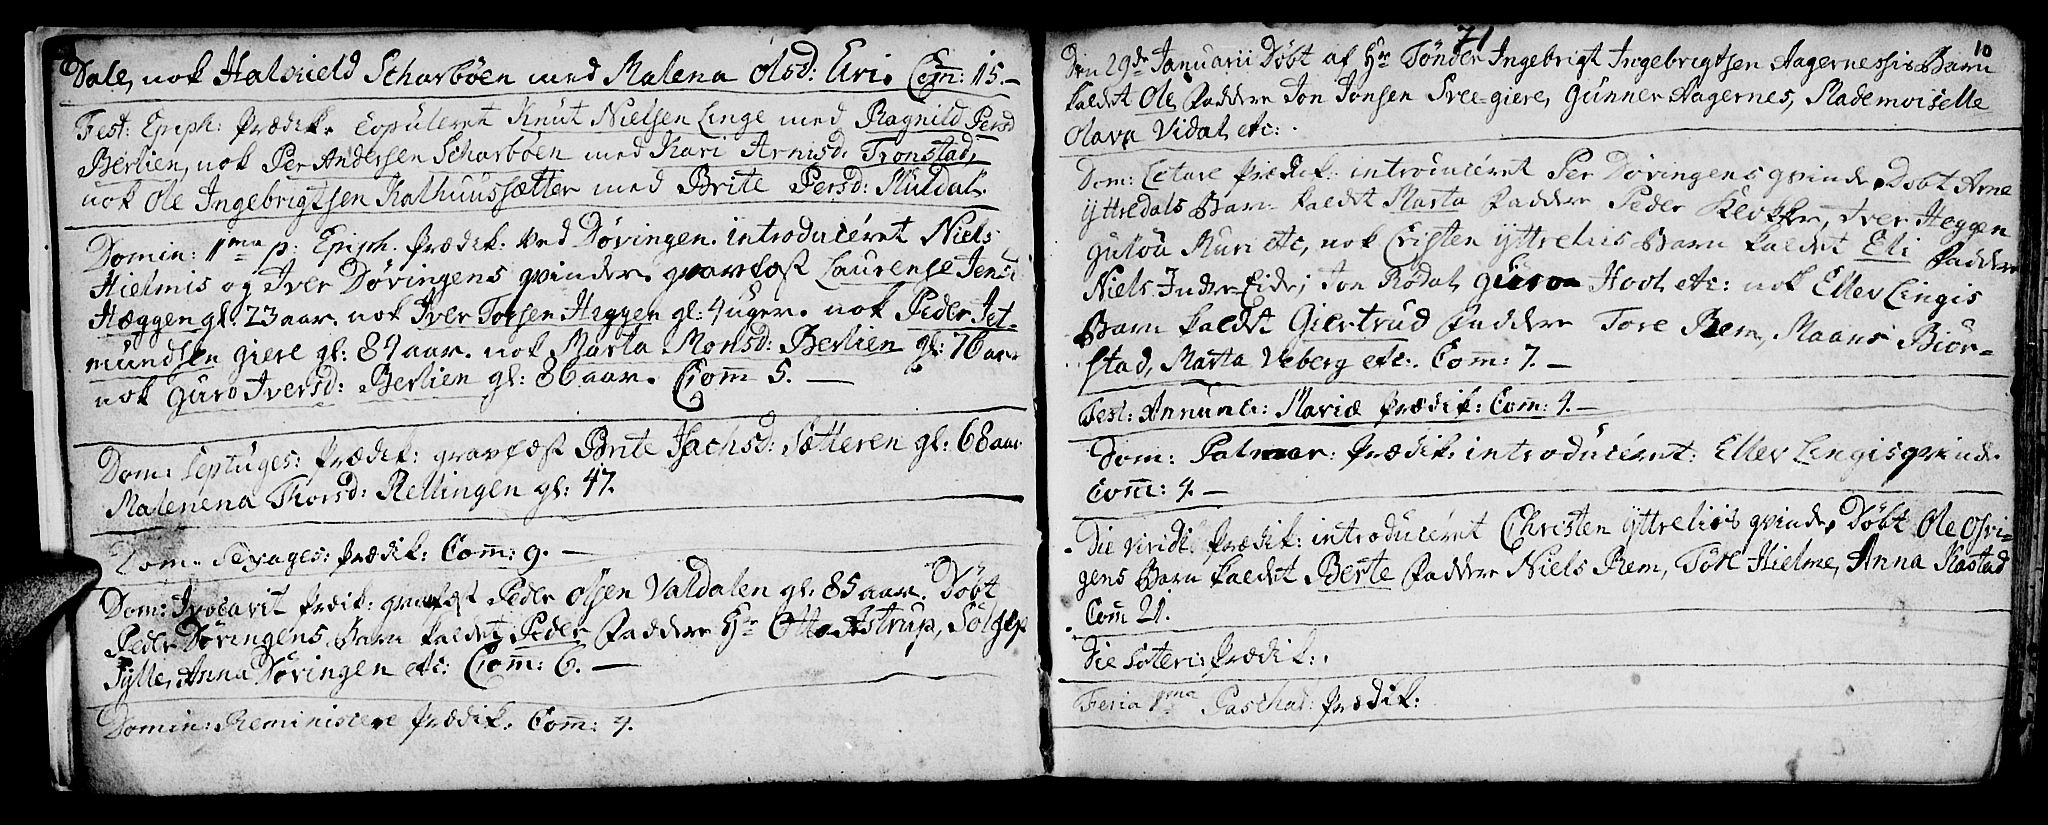 Dale, nok Halskield Scharbøen med Malena Olsd: Uri. Com: 15. —
Fest: Epiph: Prædik. Copuleret Knut Nielsen Linge med Ragnild Persd
Berlien, nok Per Andersen Scharbøen med Kari Arnisd. Tronstad,
nok Ole Ingebrigtsen Kalhuussætter med Brite Persd: Muldal.
Domin: 1ma p. Epiph. Prædik. ved Døvingen. introduceret Niels
Hielmis og Iver Døvingens qvinder. gravfæst Laurense Jens:
Hæggen gl. 23 aar. nok Iver Torsen Heggen gl: 4 uger. nok Peder Jet-
mundsen giere gl: 87 aar. nok Marta Monsd: Berlien gl: 76 aar
nok Guro Iversd: Berlien gl: 86 aar. Com 5. —
Dom: Septuges: Prædik: gravfæst Brite Jachsd: Sætteren gl: 68 aar
Malenena Thorsd: Rellingen gl: 47.
Dom. Sexages: Prædik: Com: 9. —
Dom: Invocavit Prædik: gravfæst Peder Olsen Valdalen gl: 85 aar. Døbt
Peder Døvingens Barn kaldet Peder Faddere Hr Otto Astrup, Sølfest
Sylte, Anna Døvingen etc: Com: 6. —
Domin: Reminiscere Prædik. Com: 4.
71
10
Den 29de Januarii Døbt af Hr Tønder Ingebrigt Ingebrigtsen Aagernessis Barn
kaldet Ole, Faddere Jon Jonsen Svee-giere, Gunner Aagernes, Mademoiselle
Olava Vidal, etc: .
Dom: Letare Prædik: introduceret Per Døvingens qvinde, Døbt Arne
Yttredals Barn kaldet Marta Faddere Peder Klokker, Iver Heggen
Gulou Muri etc, nok Cristen Yttrelis Barn kaldet Eli Faddere
Niels Indre Eide, Jon Rødal, Guroe Hool, etc: nok Ellev Lingis
Barn kaldet Giertrud Faddere Tore Rem, Maans Biør-
stad, Marta Veberg etc: Com: 7. —
Fest: Annunc: Mariæ Prædik: Com: 4. —
Dom: Palmar: Prædik: introduceret: Ellev Lingis qvinde.
Com: 4. —
Die Virid: Prædik: introduceret Christen Yttreliis qvinde, Døbt Ole Osvi-
gens Barn kaldet Berte Faddere Niels Rem, Tore Hielme, Anna Rastad
Com 21.
Die Soteri: Prædik: .
Feria 1ma Paschat: Prædik: